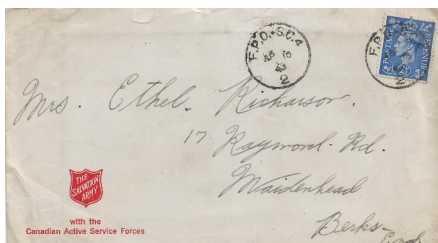 F.P.O. S.C.4
2
F.P.O.
2
POSTAGE REVENUE
Mrs. Ethel. Richarson.
17 Raymond. Rd.
Maidenhead
Berks-
THE
SALVATION
ARMY
with the
Canadian Active Service Forces